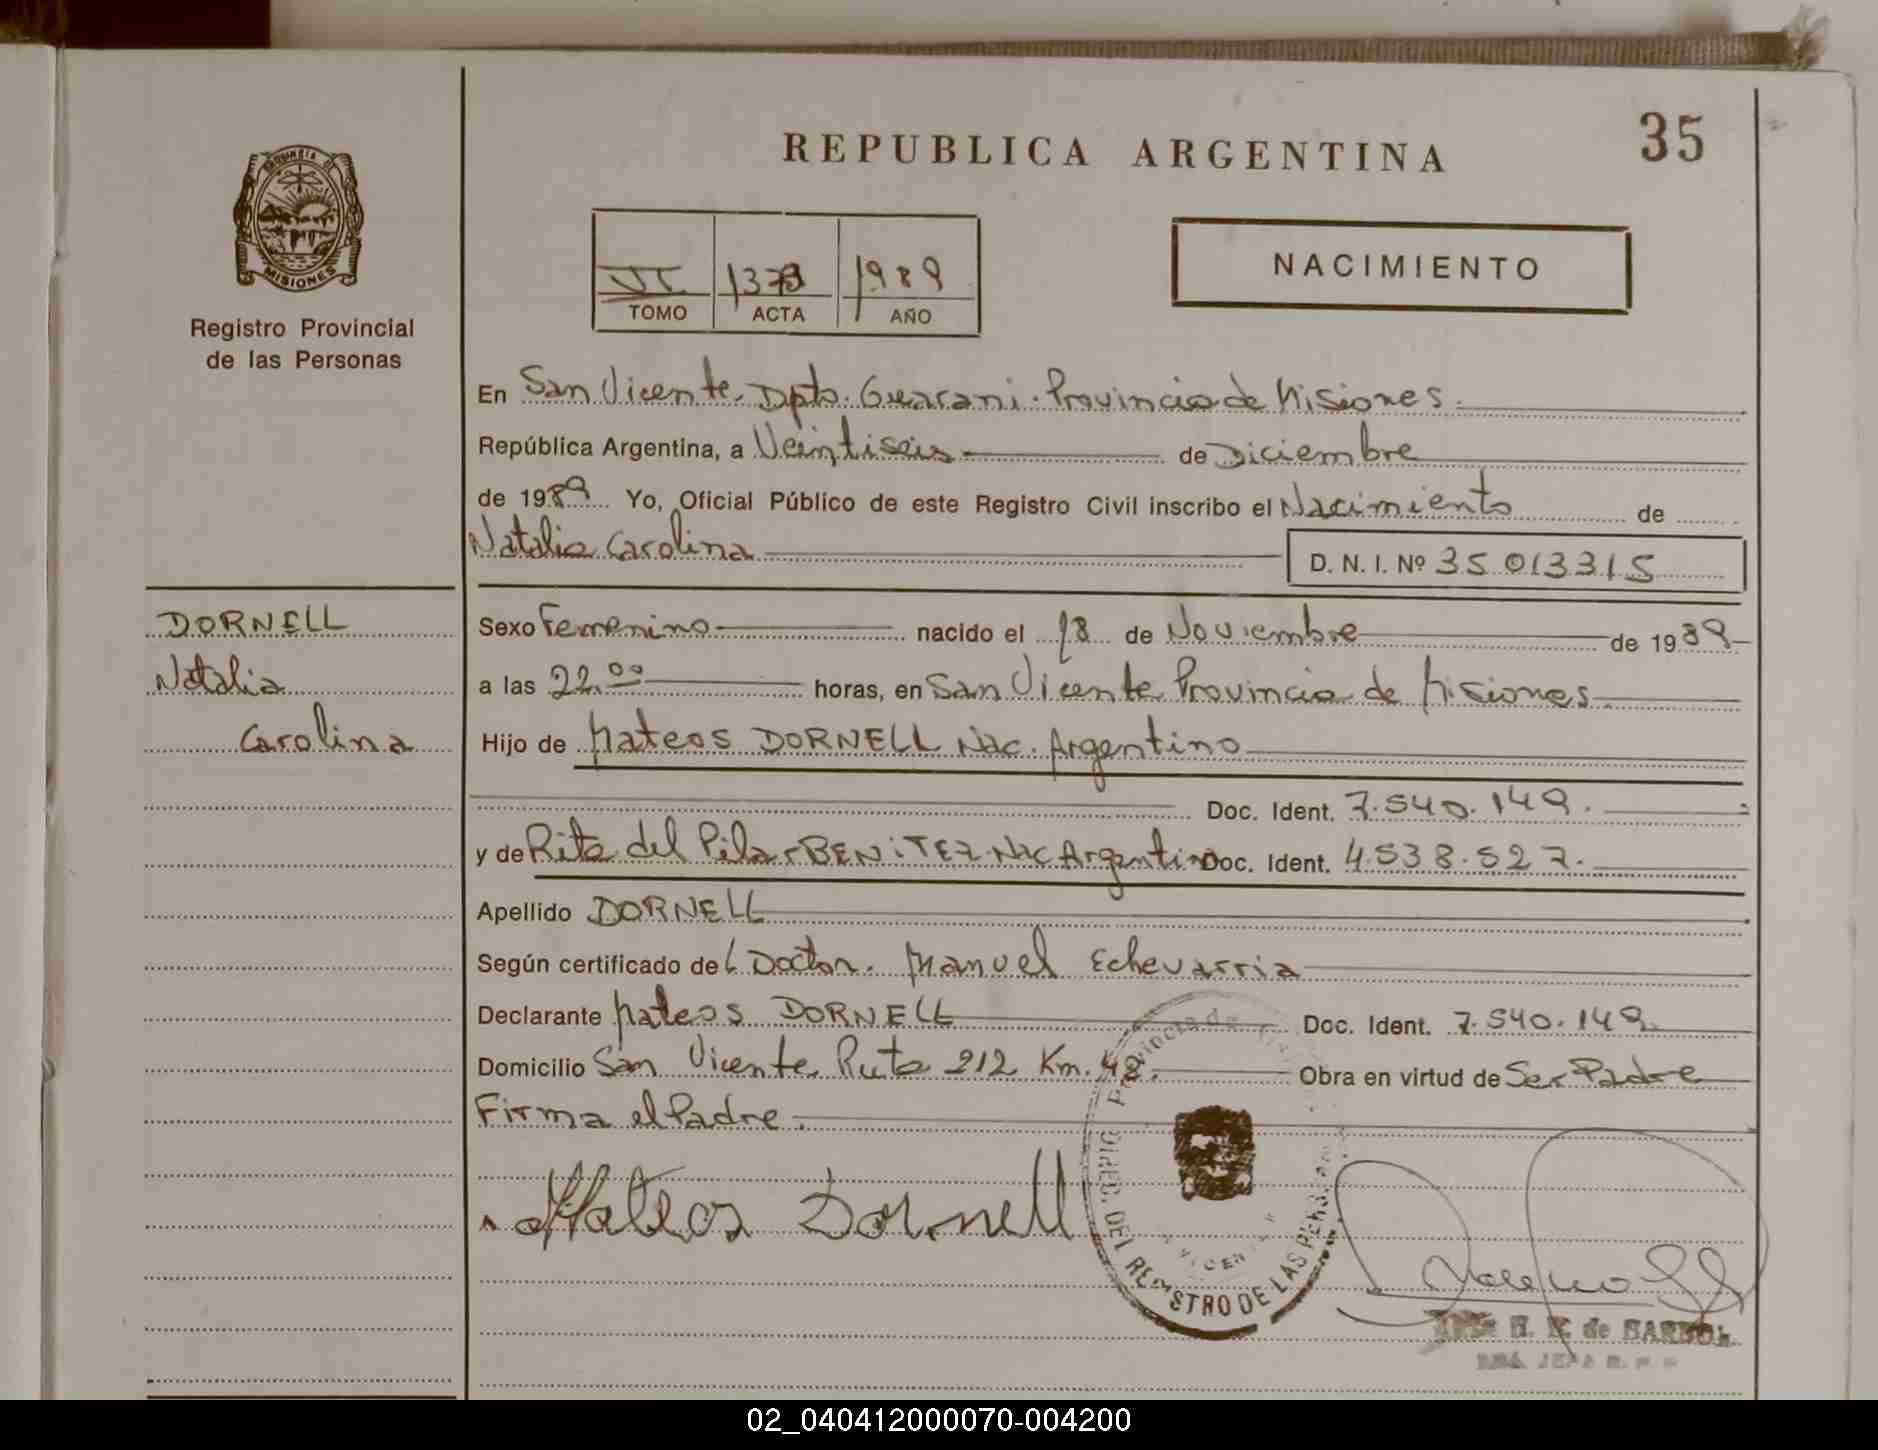 35
REPUBLICA ARGENTINA
PROVINCIA DE
MISIONES
Registro Provincial
de las Personas
VI 1373 1989
TOMO ACTA AÑO
NACIMIENTO
En San Vicente. Dpto. Guarani. Provincia de Misiones.
República Argentina, a Veintiseis de Diciembre
de 1989 Yo, Oficial Público de este Registro Civil inscribo el Nacimiento de
Natalia Carolina
D. N. I. Nº 35 013315
DORNELL
Natalia
Carolina
Sexo Femenino nacido el 18 de Noviembre de 1989
a las 22.00 horas, en San Vicente Provincia de Misiones.
Hijo de Mateos DORNELL Nac. Argentino
Doc. Ident. 7.540.149.
y de Rita del Pilar BENiTEZ Nac Argentino Doc. Ident. 4.538.527.
Apellido DORNELL
Según certificado del Doctor. Manuel Echevarria
Declarante Mateos DORNELL Doc. Ident. 7.540.149.
Domicilio San Vicente Ruta 212 Km. 48. Obra en virtud de Ser Padre
Firma el Padre.
Mateos Dornell
Provincia de
DEL REGISTRO DE LAS PERSONAS
H. de
02_040412000070-004200